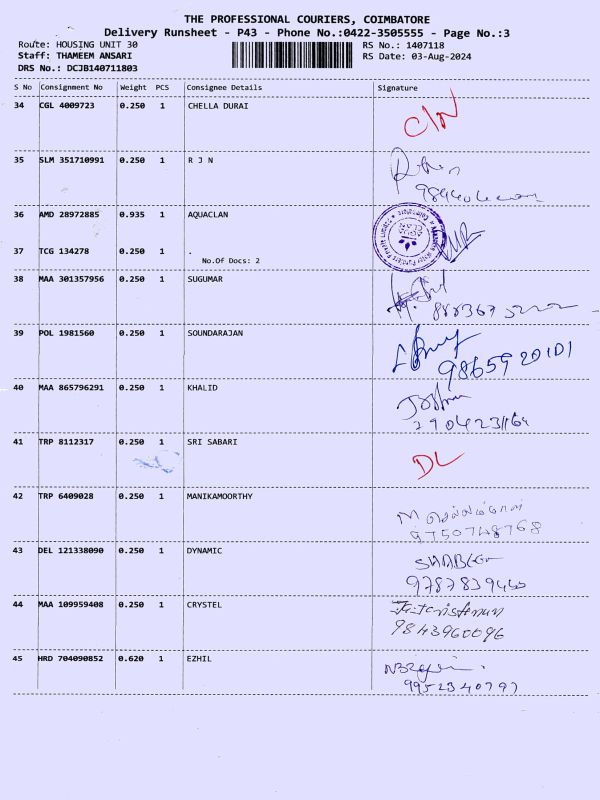 THE PROFESSIONAL COURIERS, COIMBATORE
Delivery Runsheet - P43 - Phone No.:0422-3505555 - Page No.:3
Route: HOUSING UNIT 30 RS No.: 1407118
Staff: THAMEEM ANSARI RS Date: 03-Aug-2024
DRS No.: DCJB140711803
S No Consignment No Weight PCS Consignee Details Signature
34 CGL 4009723 0.250 1 CHELLA DURAI
C/N
35 SLM 351710991 0.250 1 R J N
36 AMD 28972885 0.935 1 AQUACLAN
37 TCG 134278 0.250 1 .
No.Of Docs: 2
38 MAA 301357956 0.250 1 SUGUMAR
39 POL 1981560 0.250 1 SOUNDARAJAN
9865920101
40 MAA 865796291 0.250 1 KHALID
41 TRP 8112317 0.250 1 SRI SABARI
DL
42 TRP 6409028 0.250 1 MANIKAMOORTHY
9750748768
43 DEL 121338090 0.250 1 DYNAMIC
44 MAA 109959408 0.250 1 CRYSTEL
9843960096
45 HRD 704090852 0.620 1 EZHIL
9952340797